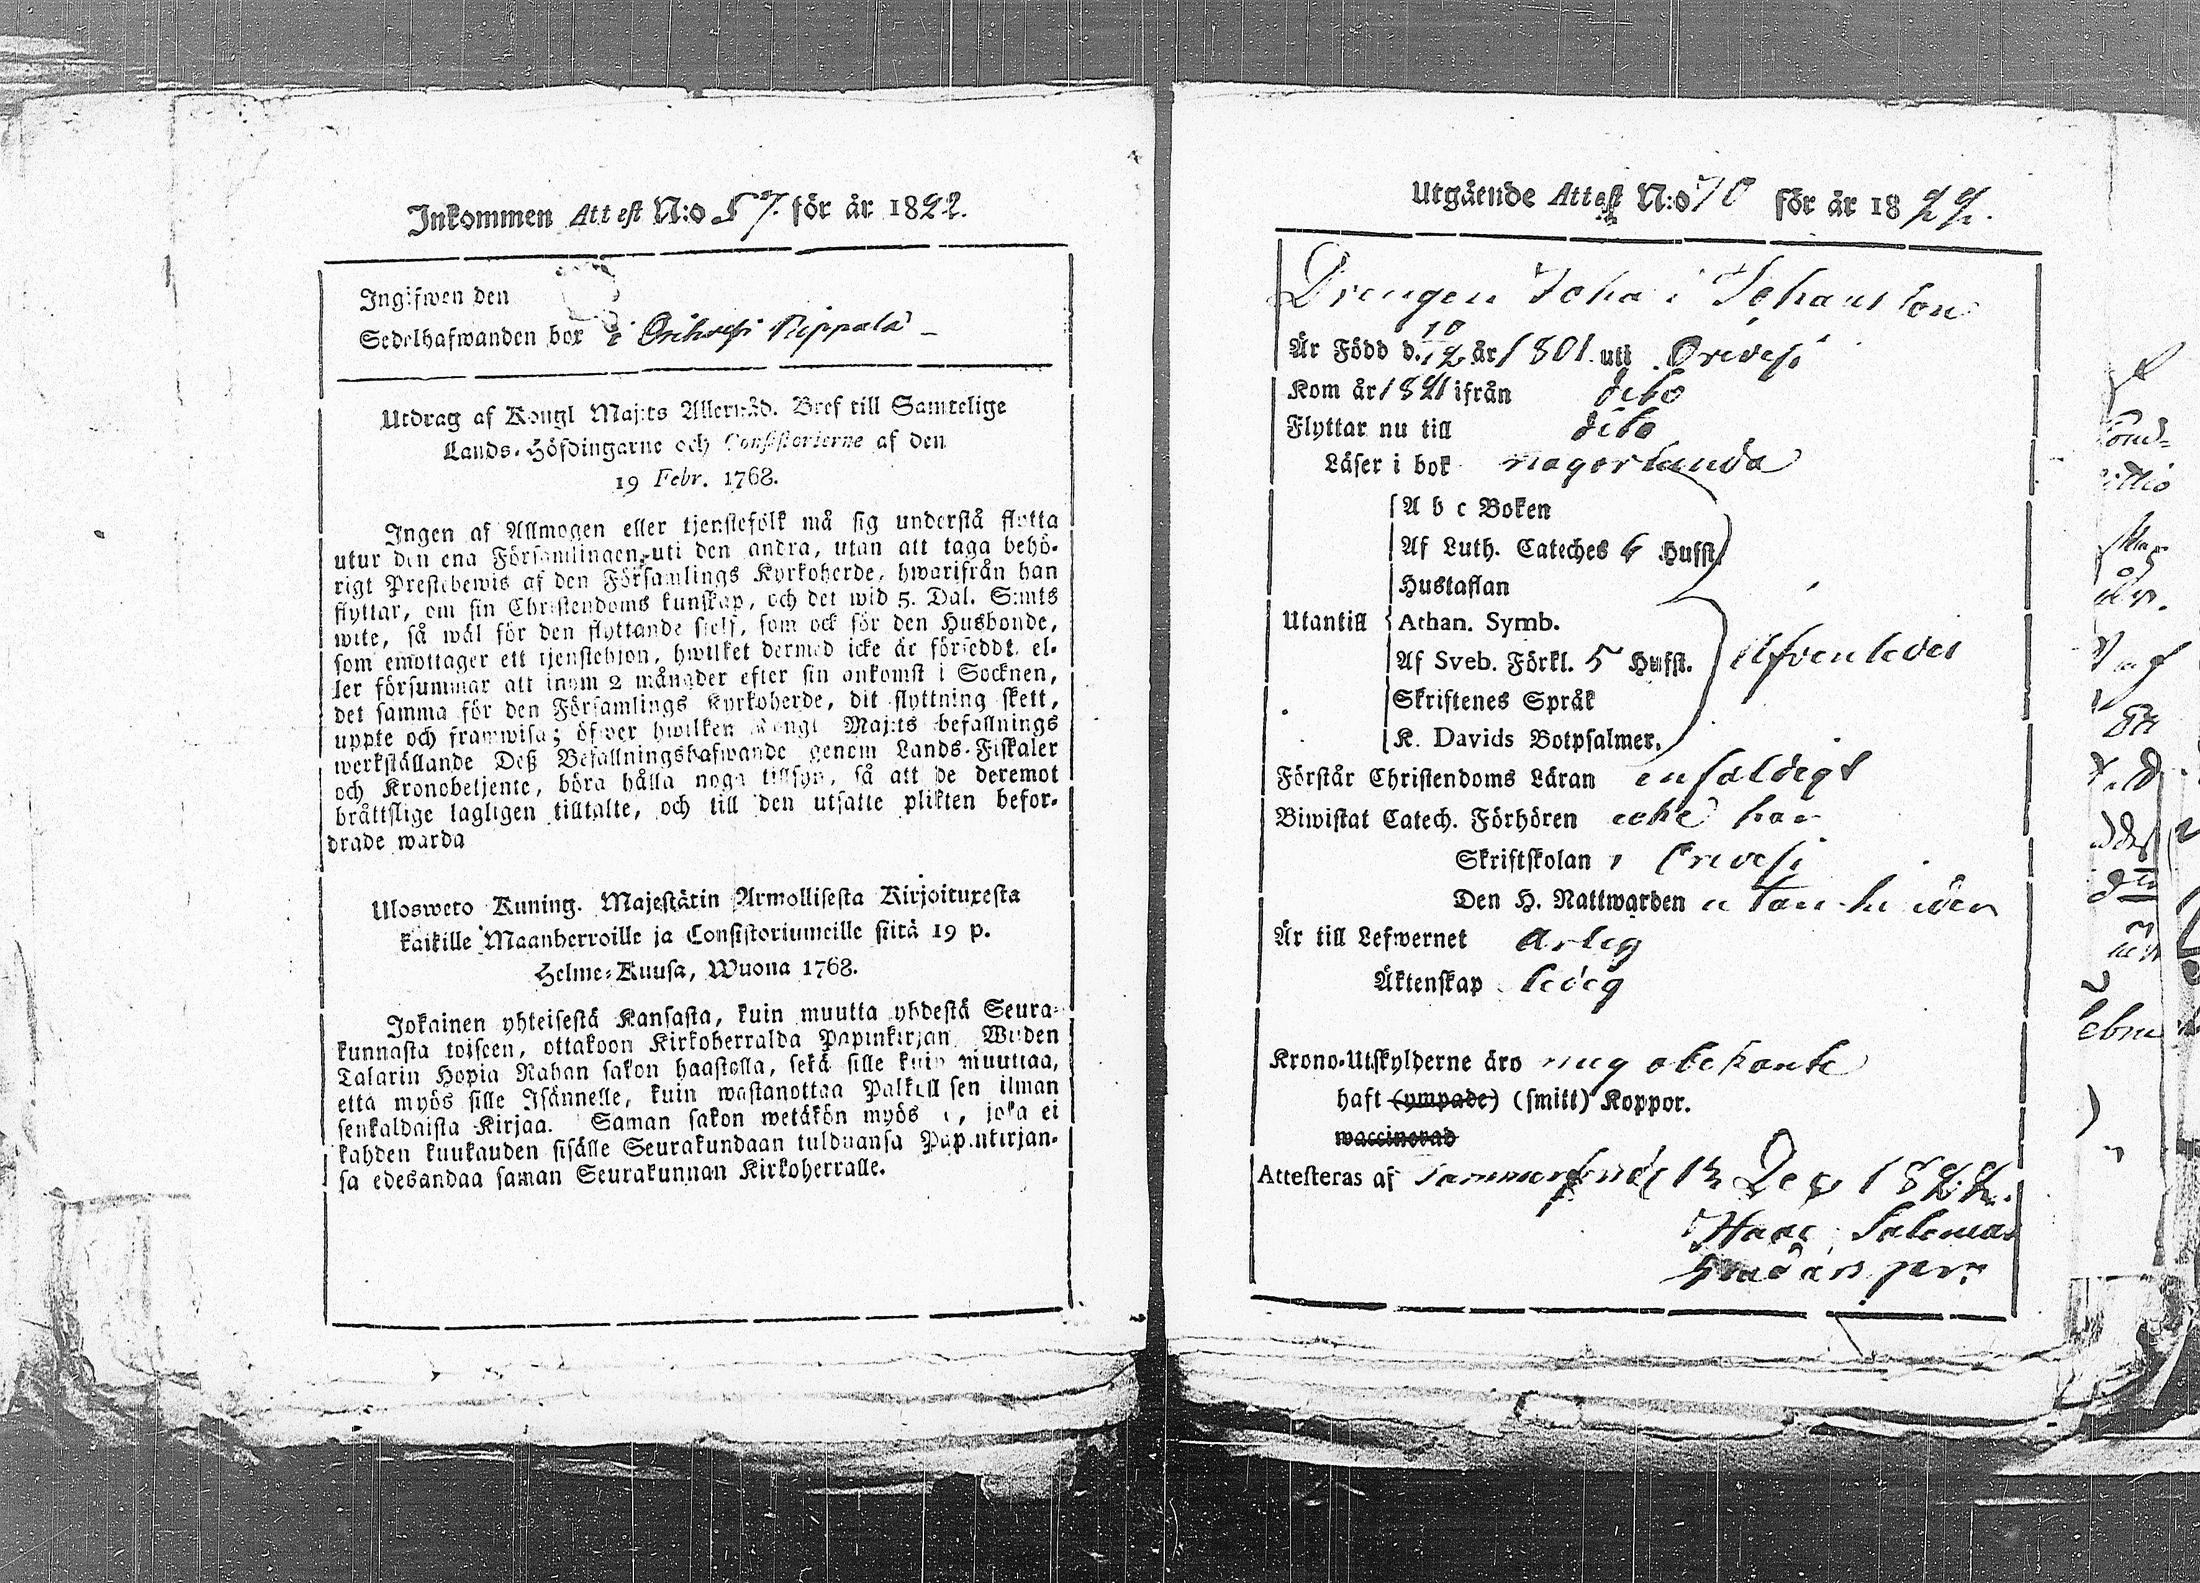 Inkommen Attest N:o 57. för år 1822.
Ingifwen den
Sedelhafwanden bor i Orihvesi Pippala
Utdrag af Kongl Maj:ts Allernåd. Bref till Samtelige
Lands-Höfdingarne och Consistorierne af den
19 Febr. 1768.
Ingen af Allmogen eller tjenstefolk må sig understå flytta
utur den ena Församlingen uti den andra, utan att taga behö-
rigt Prestebewis af den Församlings Kyrkoherde, hwarifrån han
flyttar, om sin Christendoms kunskap, och det wid 5. Dal. S:mts
wite, så wäl för den flyttande sjelf, som ock för den Husbonde,
som emottager ett tjenstehjon, hwilket dermed icke är förseddt, el-
ler försummar att inom 2 månader efter sin ankomst i Socknen,
det samma för den Församlings Kyrkoherde, dit flyttning skett,
uppte och framwisa; öfwer hwilken Kongl Maj:ts befallnings
werkställande Deß Befallningshafwande genom Lands-Fiskaler
och Kronobetjente, böra hålla noga tillsyn, så att de deremot
bråttslige lagligen tilltalte, och till den utsatte plikten befor-
drade warda
Ulosweto Kuning. Majestätin Armollisesta Kirjoituxesta
kaikille Maanherroille ja Consistoriumeille siitä 19 p.
Helme-Kuusa, Wuona 1768.
Jokainen yhteisestä Kansasta, kuin muutta yhdestä Seura-
kunnasta toiseen, ottakoon Kirkoherralda Papinkirjan Wiiden
Talarin Hopia Rahan sakon haastolla, sekä sille kuin muuttaa,
että myös sille Isännelle, kuin wastanottaa Palkollisen ilman
senkaldaista Kirjaa. Saman sakon wetäkön myös , joka ei
kahden kuukauden sisälle Seurakundaan tulduansa Papinkirjan-
sa edesandaa saman Seurakunnan Kirkoherralle.
Utgående Attest N:o 70 för år 1822.
Drengen Joha Johansson
Är Född d. 10/12 år 1801. uti Orivesi
Kom år 1821 ifrån dito
Flyttar nu till dito
Läser i bok någorlunda
A b c Boken
Af Luth. Cateches 6 Hufst.
Hustaflan
Utantill Athan. Symb.
Af Sveb. Förkl. 5 Hufst. Äfvenledes
Skriftenes Språk
K. Davids Botpsalmer.
Förstår Christendoms Läran enfaldigt
Biwistat Catech. Förhören icke här
Skriftskolan i Orivesi
Den H. Nattwarden utan hinder
Är till Lefwernet ärlig
Äktenskap ledig
Krono-Utskylderne äro mig obekante
haft (ympade) (smitt) Koppor.
waccinerad
Attesteras af 13 Dec 1822.
Isaac